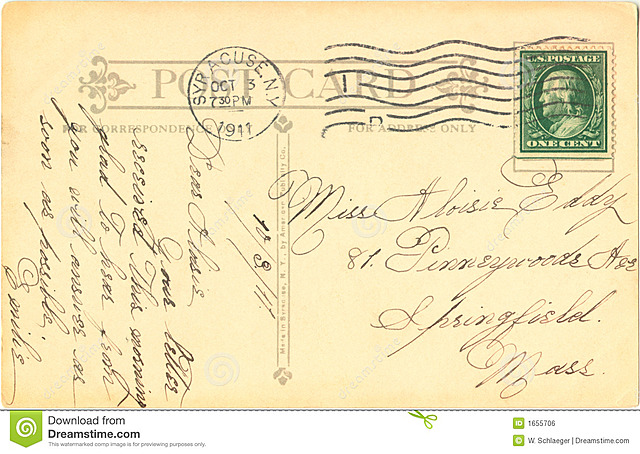 POST CARD
FOR CORRESPONDENCE
FOR ADDRESS ONLY
SYRACUSE, N.Y.
OCT 3
7 30 PM
1911
U.S. POSTAGE
ONE CENT
Miss Aloisie Eddy
81. Pinneywoods Ave
Springfield.
Mass.
10/3/11
Dear Aloisie
Your letter
received this morning
glad to hear from
you will answer as
soon as possible.
Made in Syracuse, N. Y., by American Publicity Co.
Download from
Dreamstime.com
This watermarked comp image is for previewing purposes only.
1655706
© W. Schlaeger | Dreamstime.com